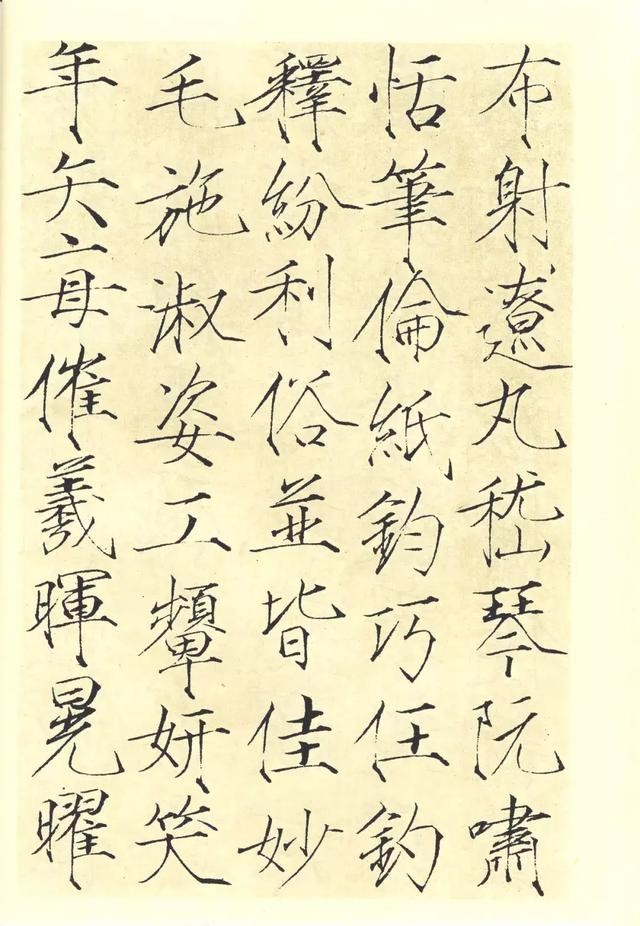 布射遼丸嵇琴阮嘯
恬筆倫紙鈞巧任釣
釋紛利俗並皆佳妙
毛施淑姿工顰妍笑
年矢每催羲暉晃曜